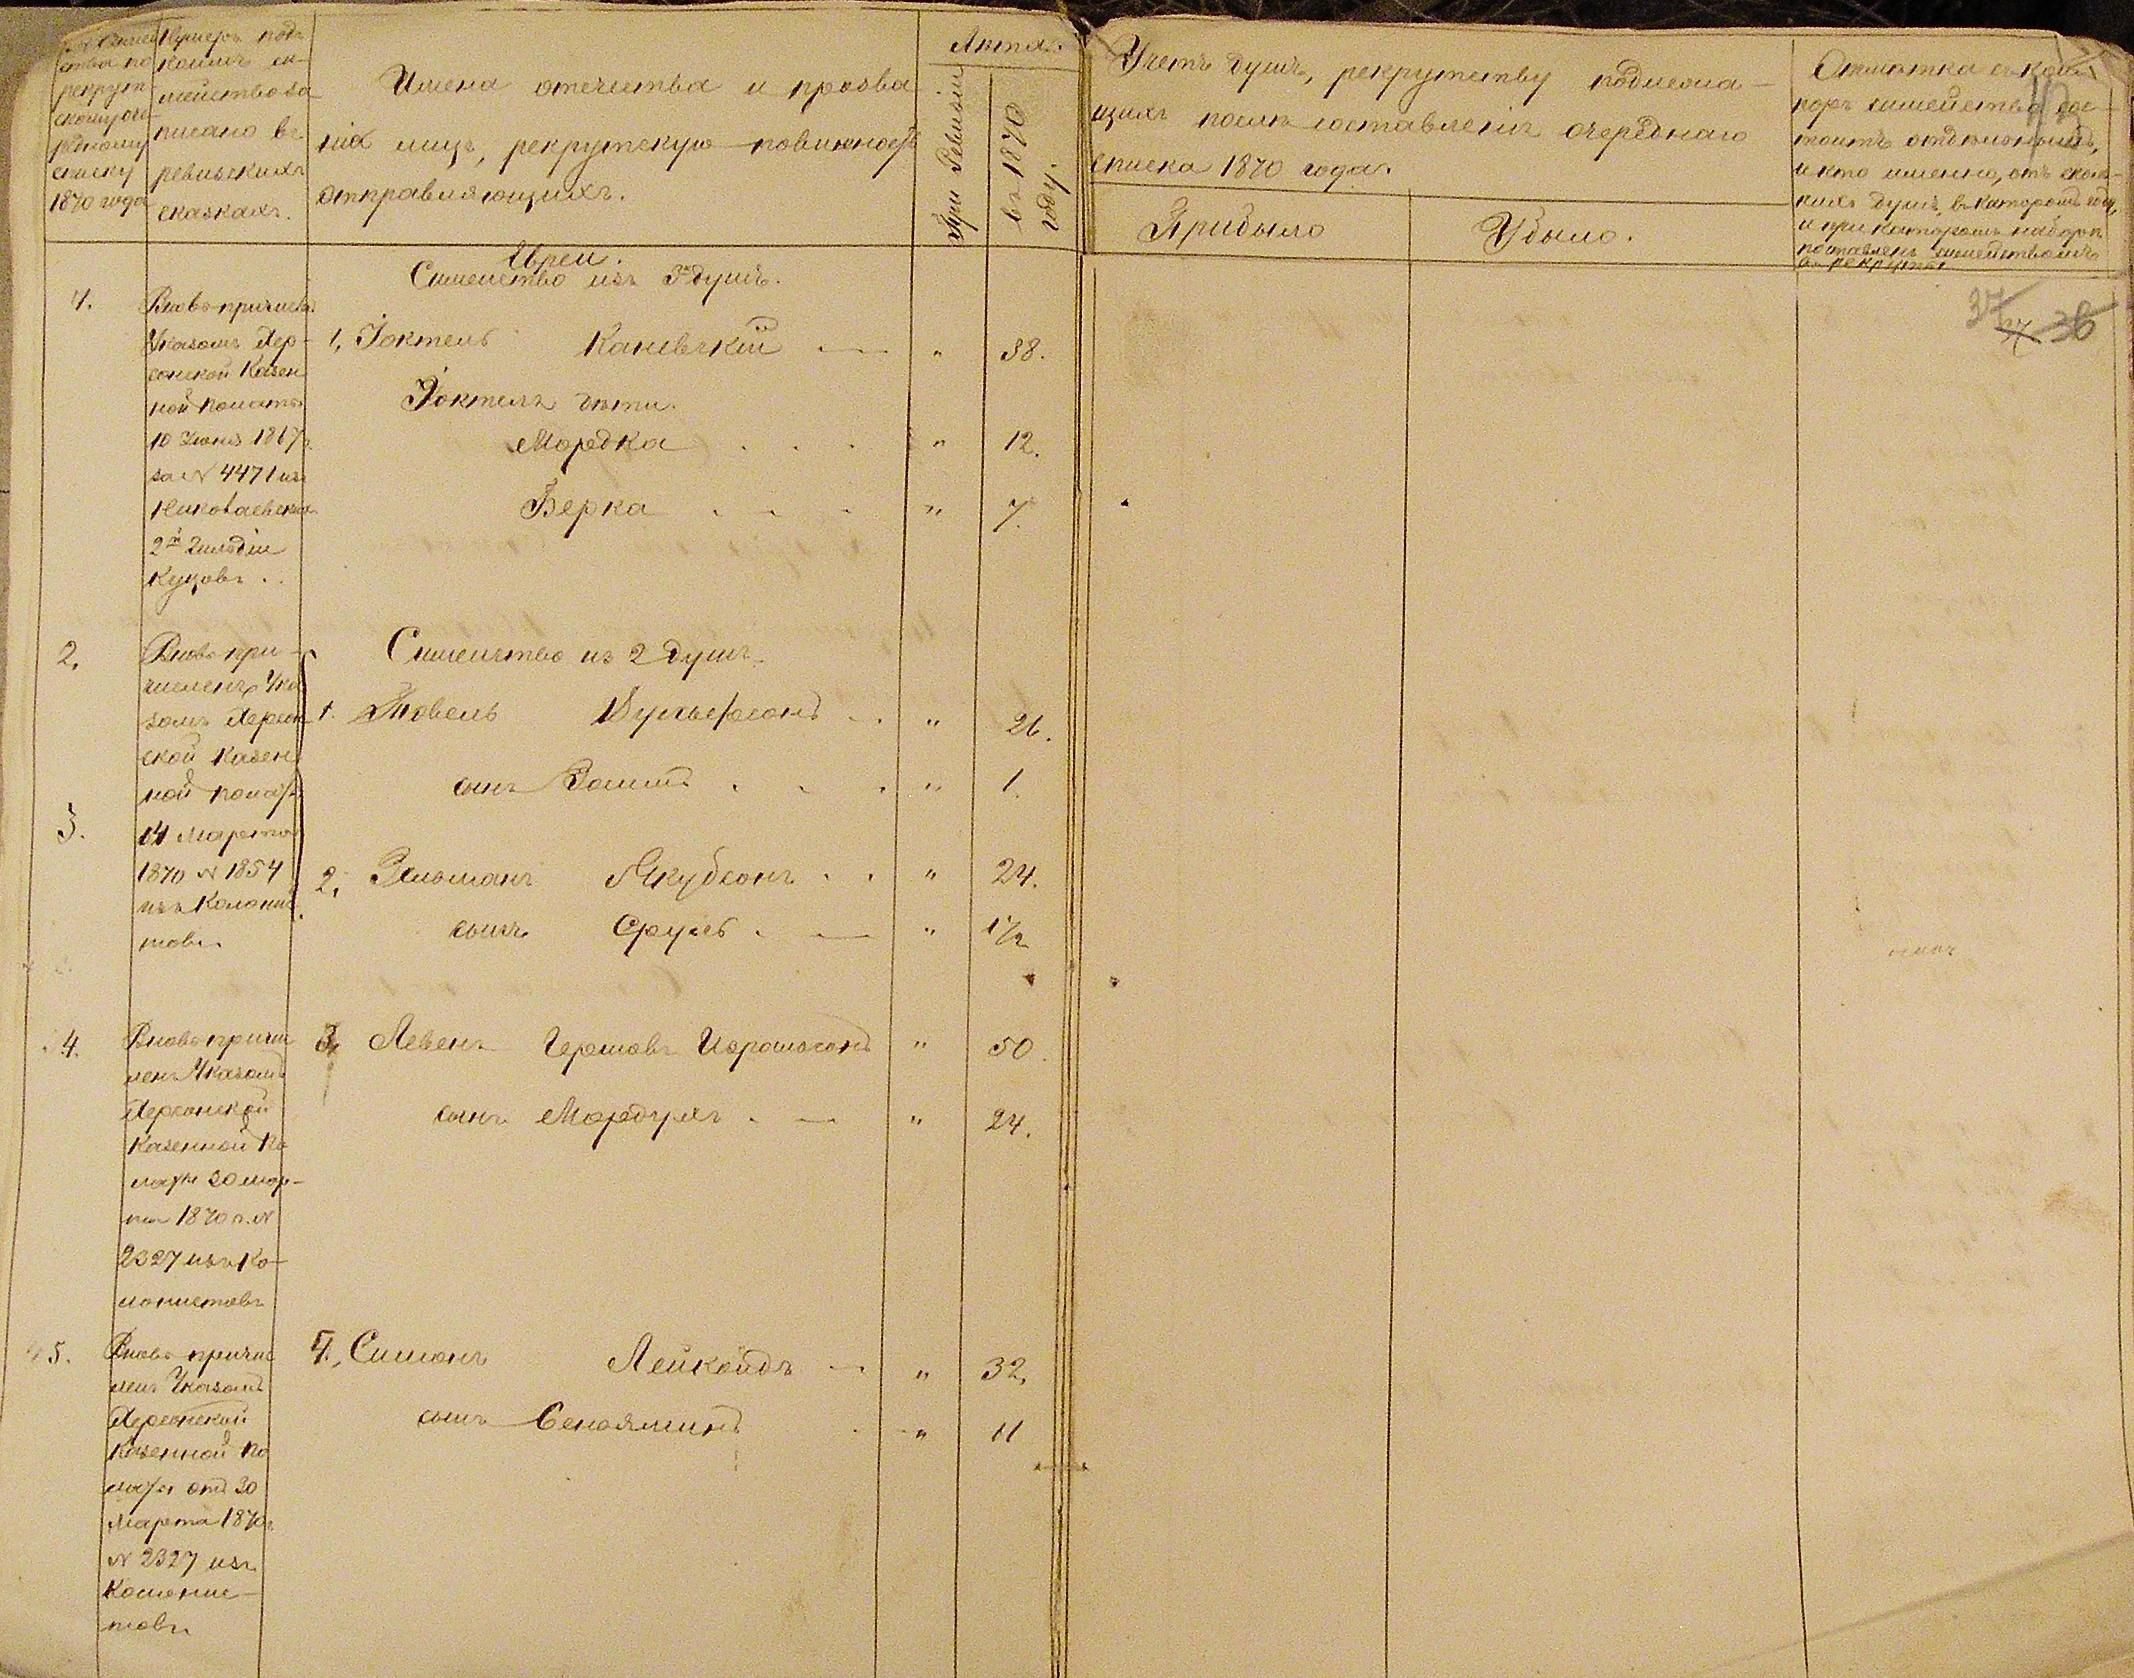 № Семей
ства по
рекрут-
скому оче-
редному
списку
1870 года
Нумеръ подъ
коимъ се-
мейство за
писано въ
ревизскихъ
сказкахъ.
Имена отечества и прозва
нія лицъ, рекрутскую повинность
отправляющихъ.
Лѣта.
При Ревизіи
въ 1870
году.
Учетъ душъ, рекрутству подлежа-
щихъ послѣ составленія очереднаго
списка 1870 года.
Прибыло
Убыло.
Отмѣтка съ коихъ
поръ семейство сос-
тоитъ отдѣльнымъ,
и кто именно, отъ сколь-
кихъ душъ, въ которомъ году,
и при которомъ наборѣ
поставленъ семействомъ
въ рекруты
37
37 36
Евреи.
Семейство изъ 3хъ душъ.
1.
Вновь причисл.
Указомъ Хер-
сонской Казен
ной Палаты
10 Іюня 1867 г.
за № 4471 изъ
Николаевских
2й Гильдіи
Купцовъ . .
1, Іоктель Каневскій — " 38.
Іоктеля дѣти.
Мордка . . . " 12.
Берка . . . " 7.
2.
3.
Вновь при-
численъ Ука
зомъ Херсон
ской Казен
ной Палаты
14 Марта
1870 № 1854
изъ Колонис
товъ.
Семейство из 2 душъ.
1. Товель . . " 26.
сынъ . . . " 1.
2, Зельманъ Якубсонъ . . " 24.
сынъ Сруль . — " 1½
4.
Вновь причи
ленъ Указомъ
Херсонской
Казенной Па
латы 30 мар-
та 1870 г. №
2327 изъ Ко-
лонистовъ
3, Левенъ Гершовъ " 50.
сынъ Мордухъ . — " 24.
5.
Вновь причис
ленъ Указомъ
Херсонской
Казенной Па
латы отъ 30
Марта 1870 г.
№ 2327 изъ
Колонис-
товъ
4, Симонъ Лейкоидъ — " 32,
сынъ Беньяминъ . . " 11